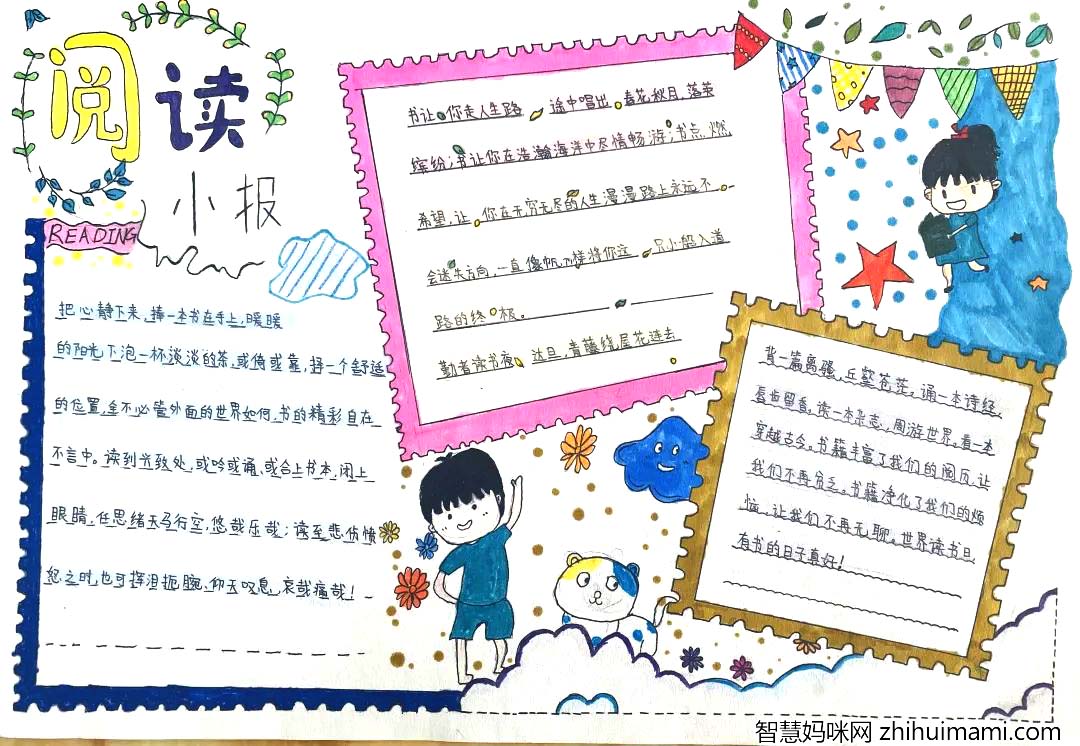 阅读
小报
READING
把心静下来,捧一本书在手上,暖暖
的阳光下泡一杯淡淡的茶,或倚或靠,择一个舒适
的位置,全不必管外面的世界如何,书的精彩自在
不言中。读到兴致处,或吟或诵、或合上书本,闭上
眼睛,任思绪天马行空,悠哉乐哉;读至悲伤愤
纪之时,也可挥泪扼腕、仰天叹息,哀哉痛哉!
书让你走人生路途中唱出春花秋月,落英
缤纷;书让你在浩瀚海洋中尽情畅游;书点燃
希望,让你在无穷无尽的人生漫漫路上永远不
会迷失方向,一直像帆一样将你这一只小船入道
路的终极。
勤者读书夜达旦,青藤绕屋花连去
背一篇离骚,丘壑苍茫,诵一本诗经
唇齿留香,读一本杂志,周游世界。看一本
穿越古今。书籍丰富了我们的阅历,让
我们不再贫乏。书籍净化了我们的烦
恼,让我们不再无聊。世界读书日
有书的日子真好!
智慧妈咪网 zhihuimami.com